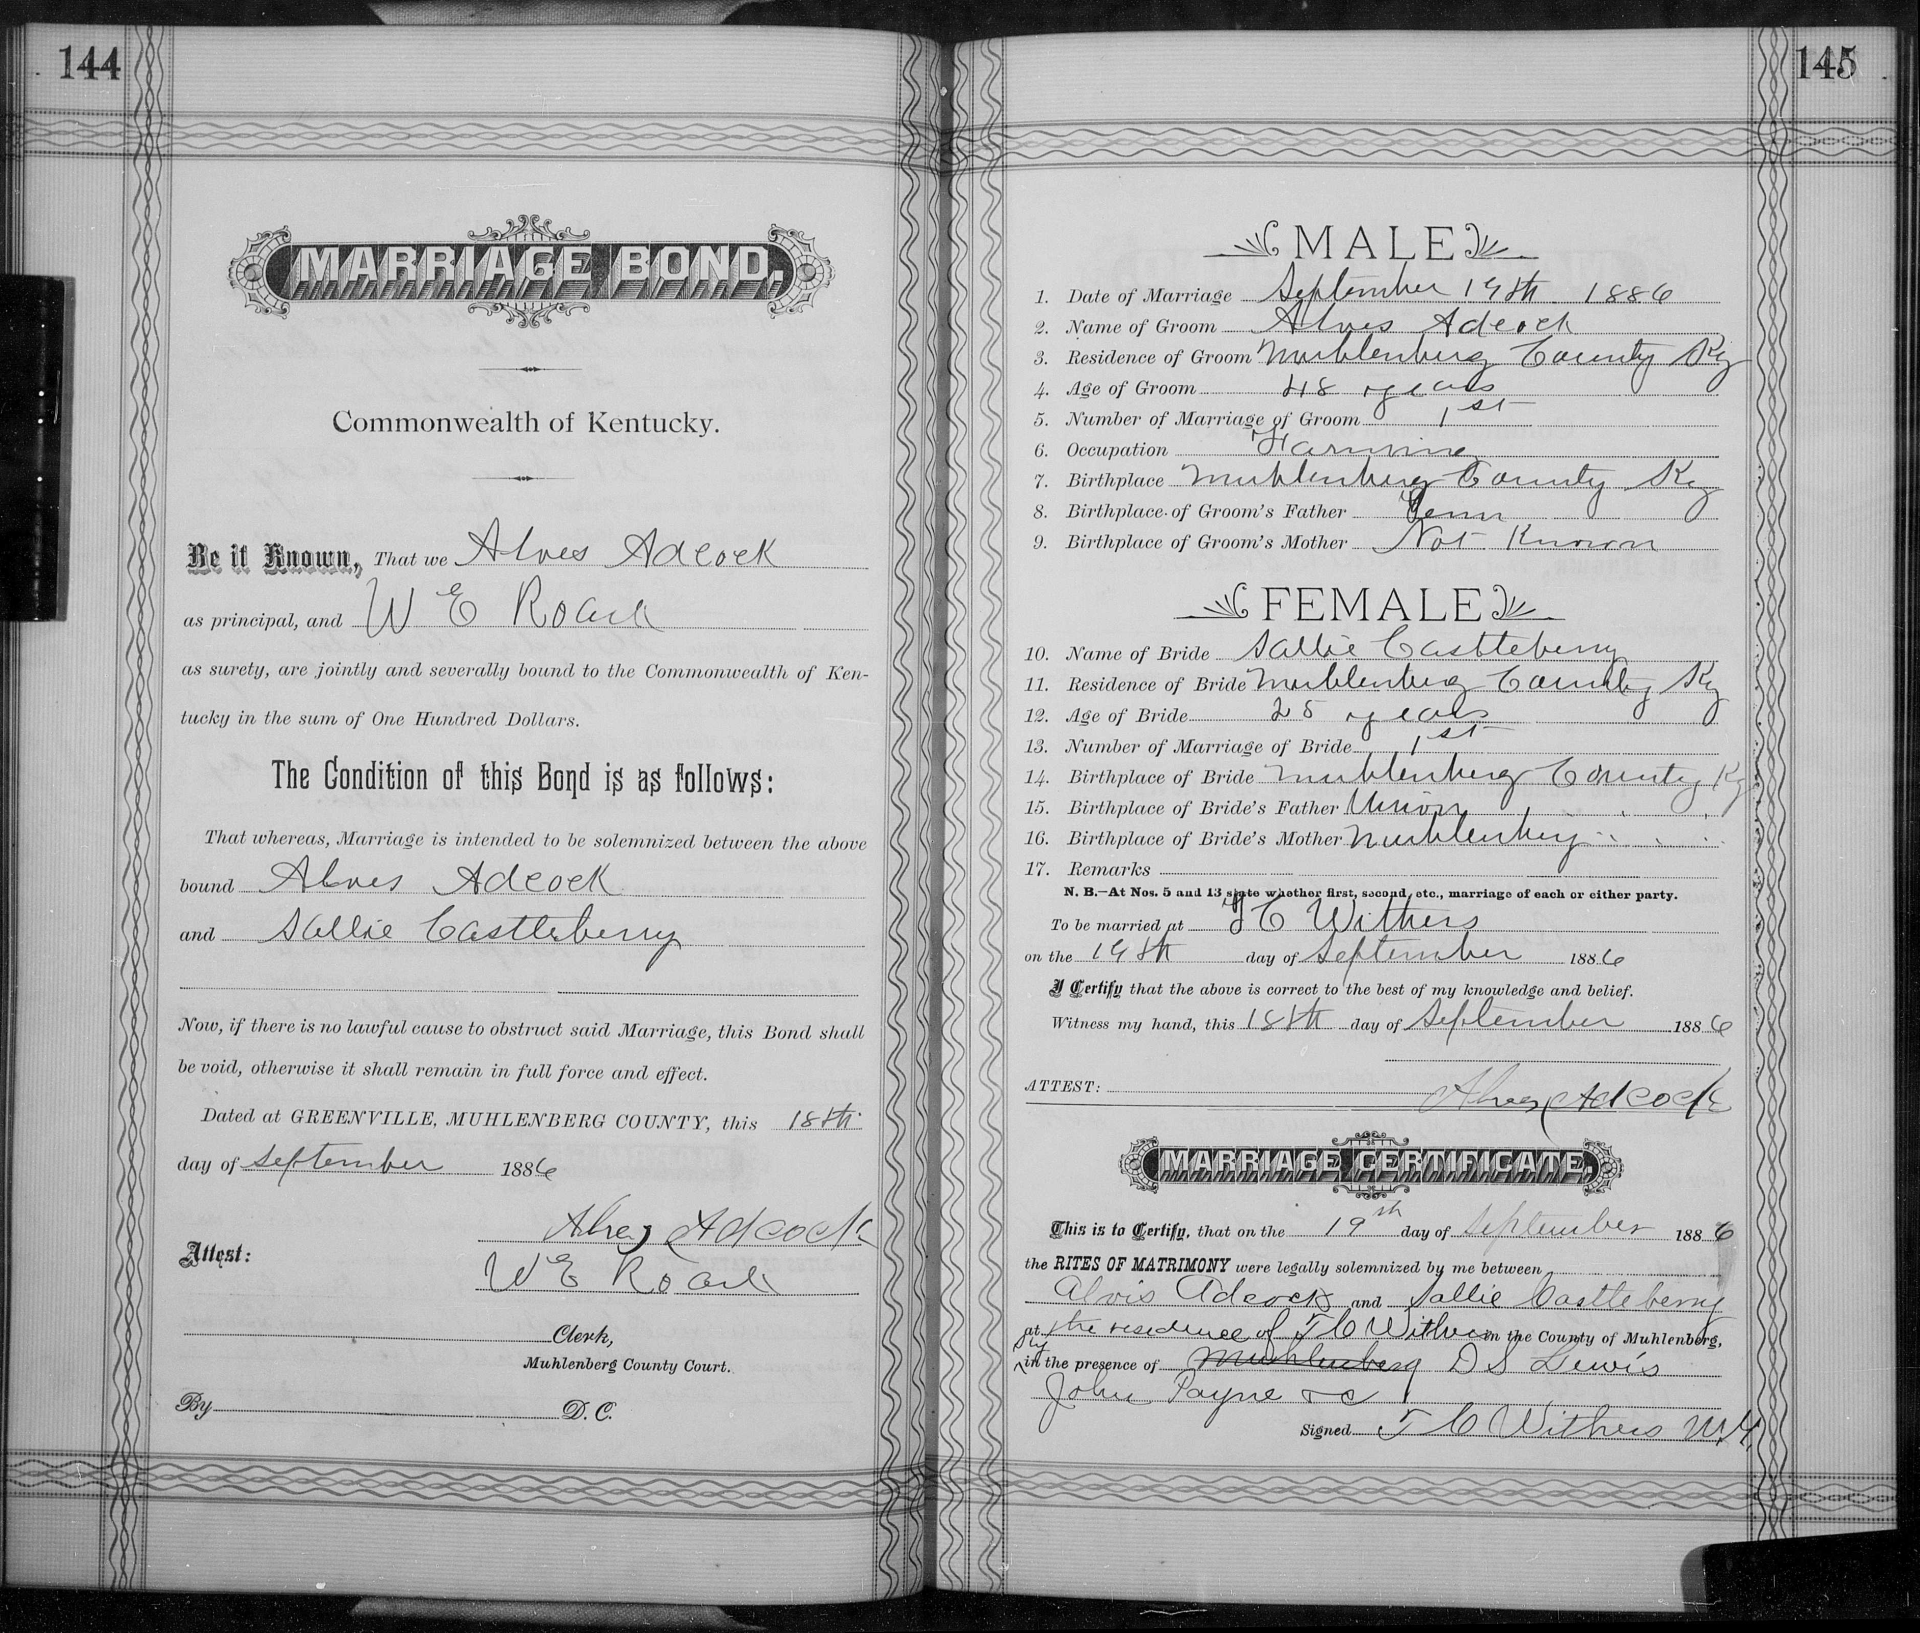 144
MARRIAGE BOND.
Commonwealth of Kentucky.
Be it Known, That we Alves Adcock
as principal, and W E Roark
as surety, are jointly and severally bound to the Commonwealth of Ken-
tucky in the sum of One Hundred Dollars.
The Condition of this Bond is as follows:
That whereas, Marriage is intended to be solemnized between the above
bound Alves Adcock
and Sallie Castleberry
Now, if there is no lawful cause to obstruct said Marriage, this Bond shall
be void, otherwise it shall remain in full force and effect.
Dated at GREENVILLE, MUHLENBERG COUNTY, this 18th
day of September 1886
Alves Adcock
Attest:
W E Roark
Clerk,
Muhlenberg County Court.
By D. C.
145
MALE
1. Date of Marriage September 19th 1886
2. Name of Groom Alves Adcock
3. Residence of Groom Muhlenberg County Ky
4. Age of Groom 48 years
5. Number of Marriage of Groom 1st
6. Occupation Farming
7. Birthplace Muhlenberg County Ky
8. Birthplace of Groom's Father Tenn
9. Birthplace of Groom's Mother Not Known
FEMALE
10. Name of Bride Sallie Castleberry
11. Residence of Bride Muhlenberg County Ky
12. Age of Bride 25 years
13. Number of Marriage of Bride 1st
14. Birthplace of Bride Muhlenberg County Ky
15. Birthplace of Bride's Father Union " "
16. Birthplace of Bride's Mother Muhlenberg " "
17. Remarks
N. B.—At Nos. 5 and 13 state whether first, second, etc., marriage of each or either party.
To be married at T C Withers
on the 19th day of September 1886
I Certify that the above is correct to the best of my knowledge and belief.
Witness my hand, this 18th day of September 1886
ATTEST: Alves Adcock
MARRIAGE CERTIFICATE.
This is to Certify, that on the 19th day of September 1886
the RITES OF MATRIMONY were legally solemnized by me between
Alvis Adcock and Sallie Castleberry
at the residence of T C Withers in the County of Muhlenberg,
Ky in the presence of Muhlenberg D S Lewis
John Payne &c
Signed T C Withers M.G.